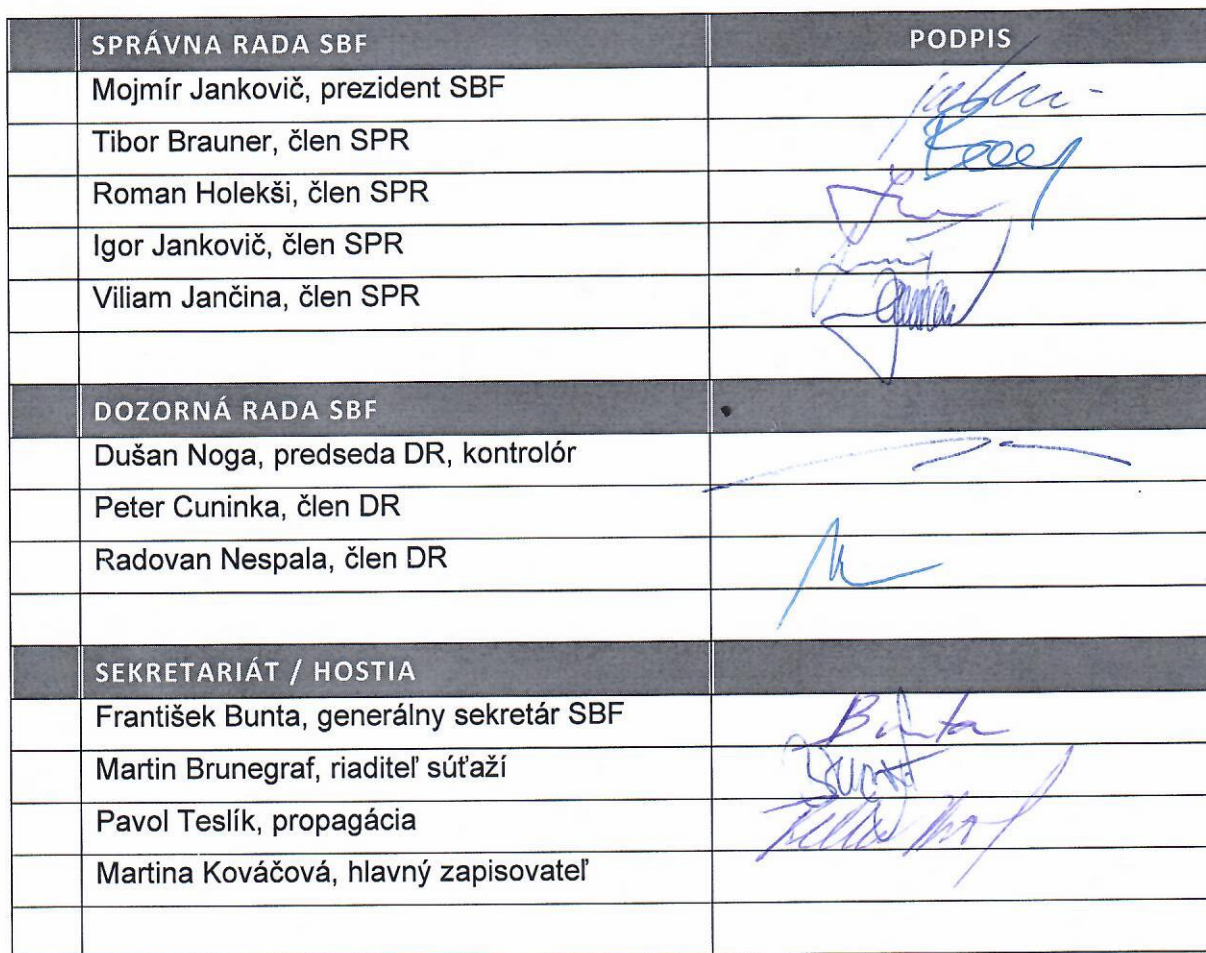 SPRÁVNA RADA SBF PODPIS
Mojmír Jankovič, prezident SBF
Tibor Brauner, člen SPR
Roman Holekši, člen SPR
Igor Jankovič, člen SPR
Viliam Jančina, člen SPR
DOZORNÁ RADA SBF
Dušan Noga, predseda DR, kontrolór
Peter Cuninka, člen DR
Radovan Nespala, člen DR
SEKRETARIÁT / HOSTIA
František Bunta, generálny sekretár SBF Bunta
Martin Brunegraf, riaditeľ súťaží
Pavol Teslík, propagácia
Martina Kováčová, hlavný zapisovateľ